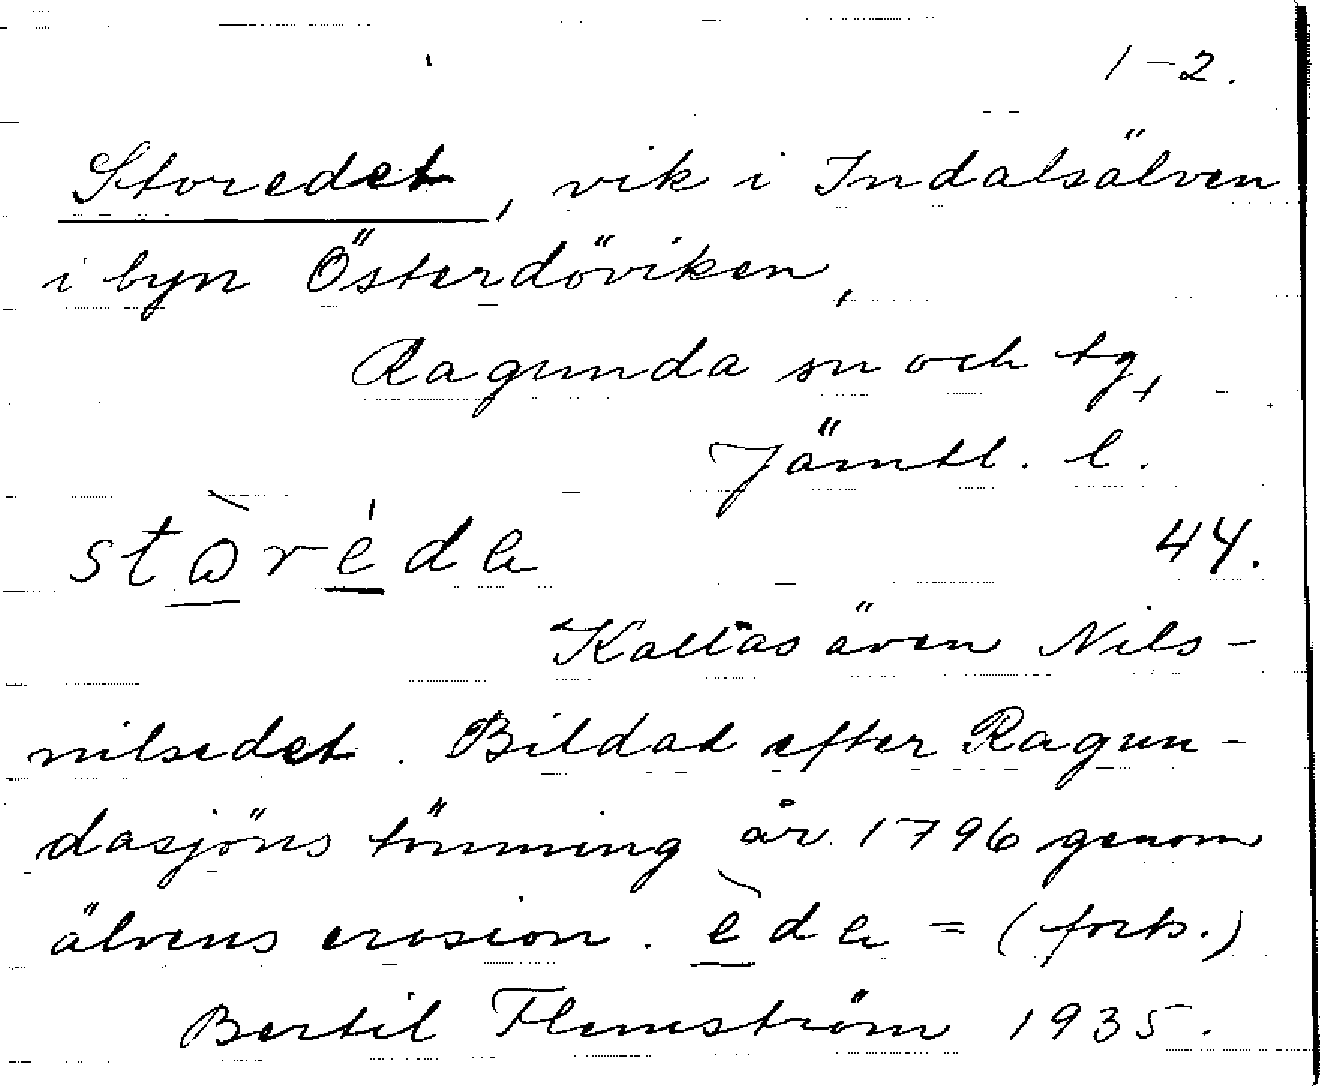 1-2.
Storedet, vik i Indalsälven
i byn Österdöviken,
Ragunda sn och tg,
Jämtl. l.
stòréda 44.
Kallas även Nils-
nilsedet. Bildat efter Ragun-
dasjöns tömning år 1796 genom
älvens erosion. èda = (forts.)
Bertil Flemström 1935.